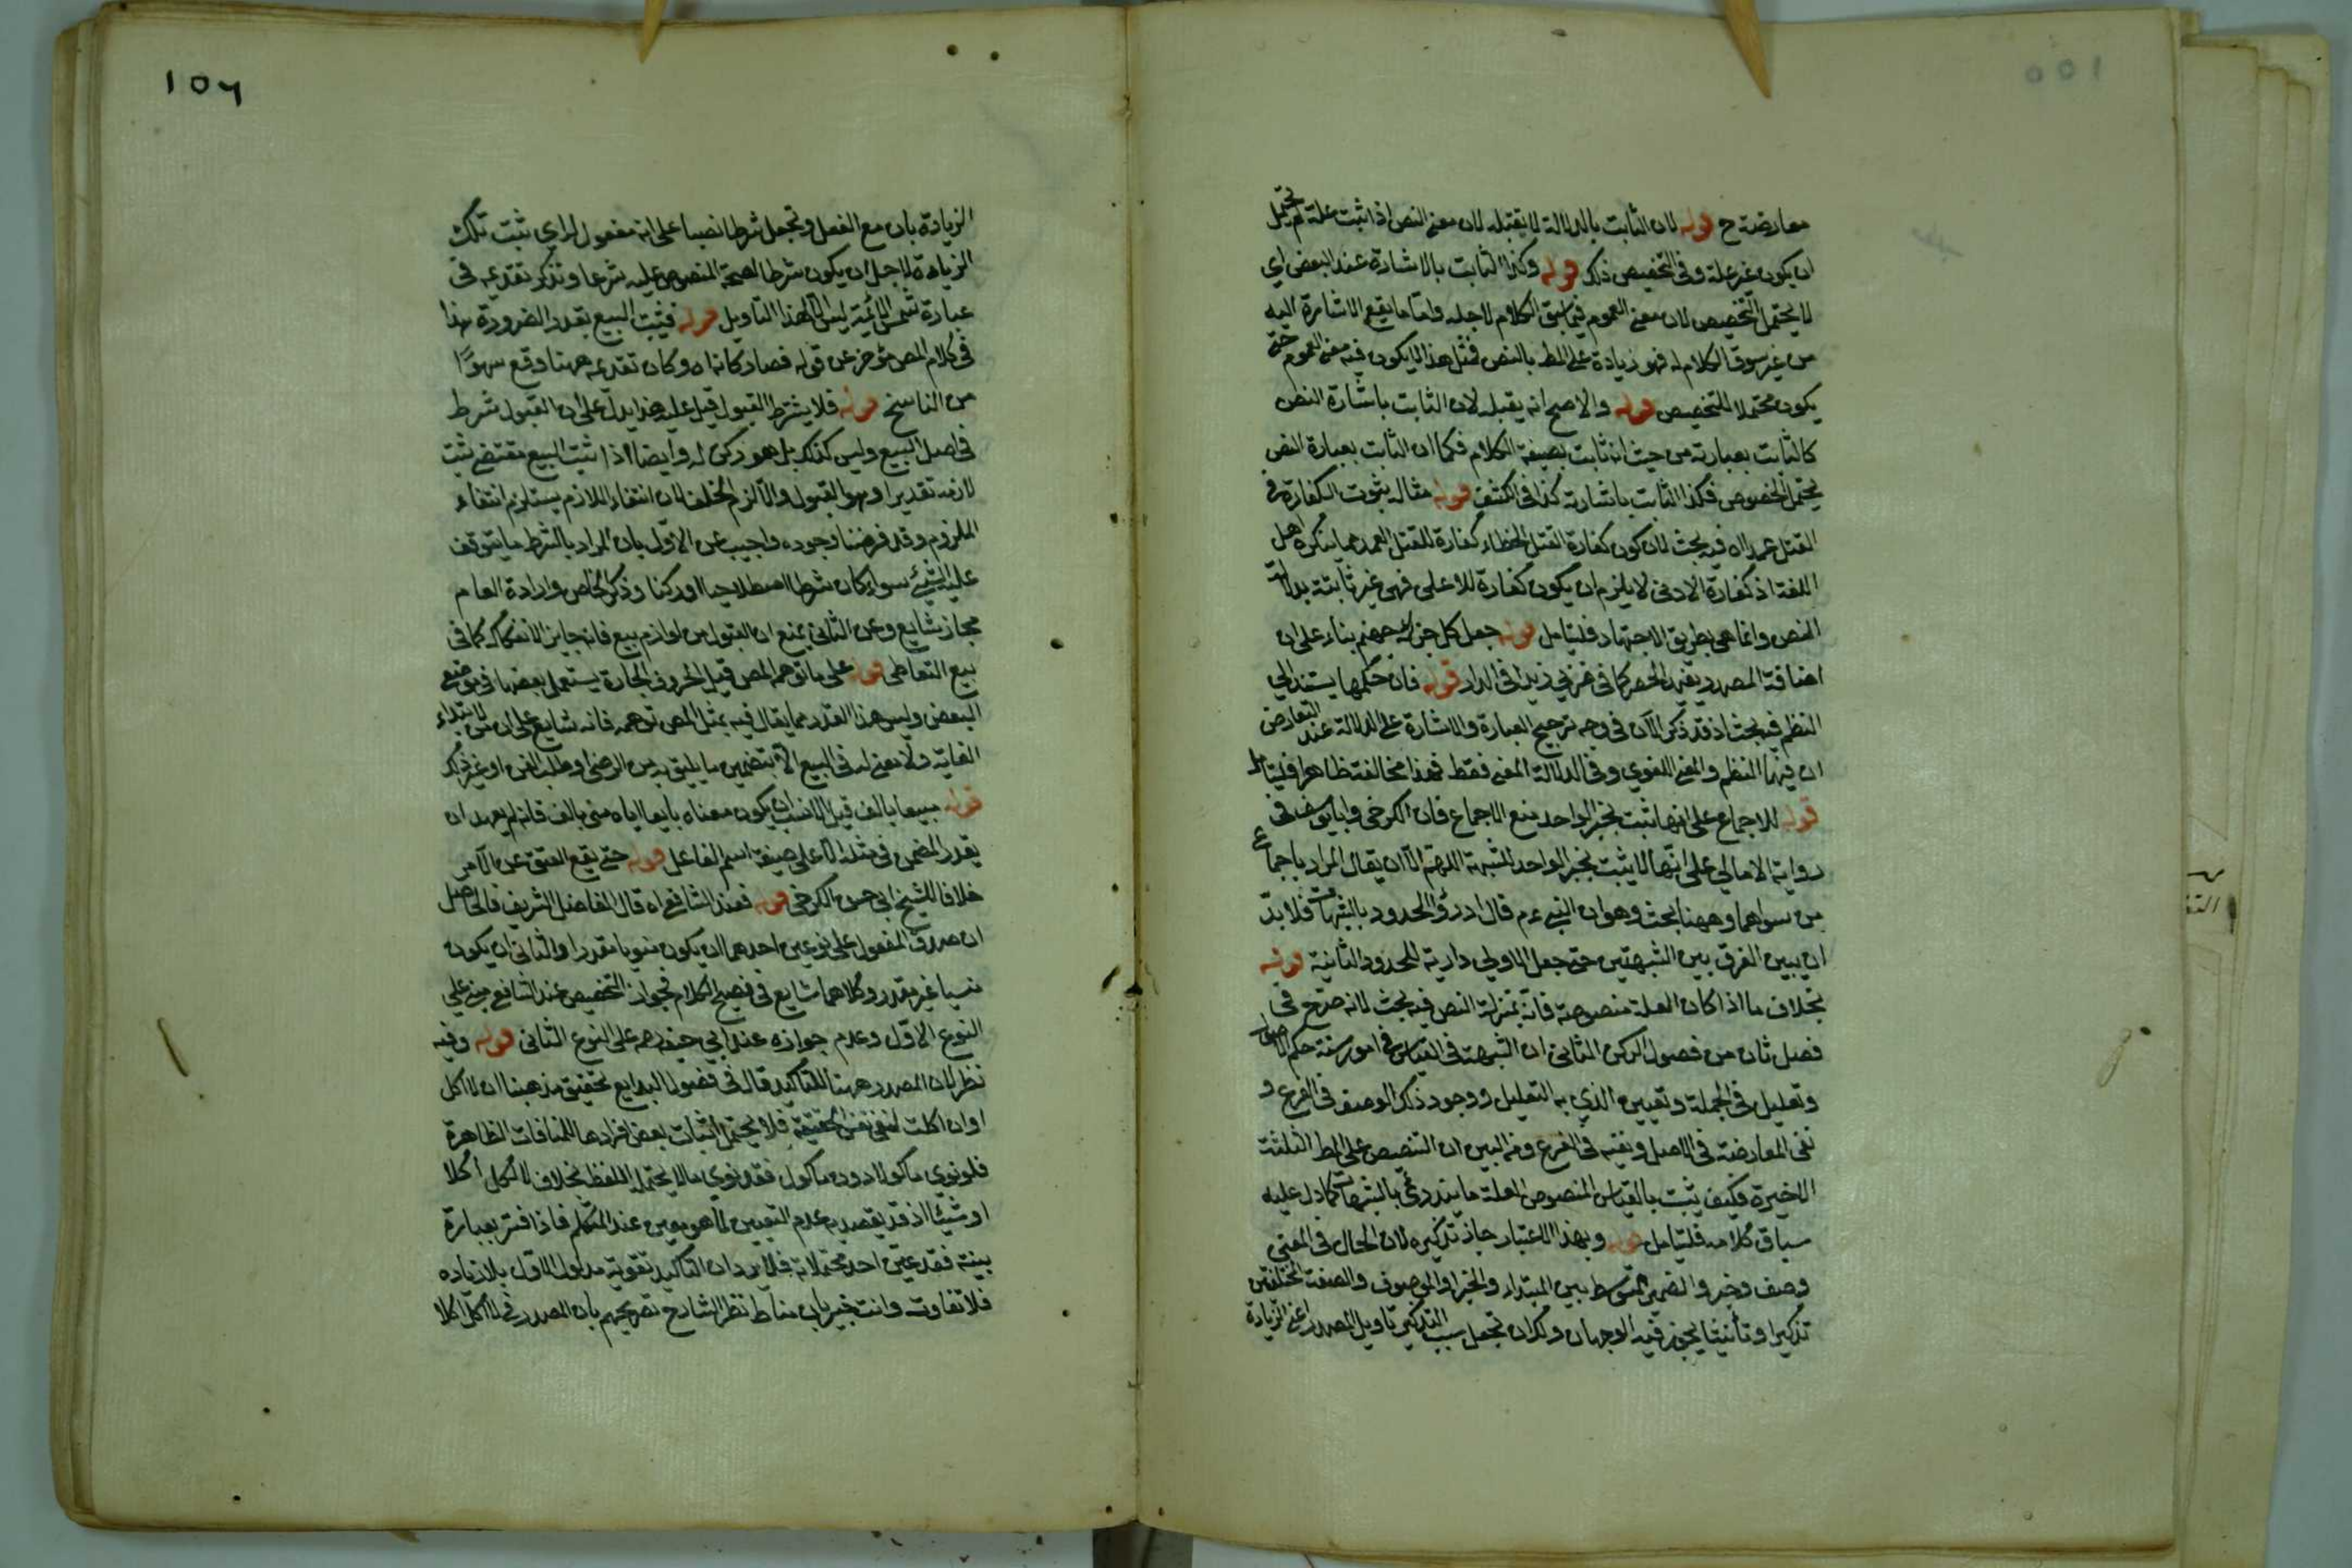 معارضة ح قوله لان الثابت بالدلالة لا يقبله لان معنى النص اذا ثبت علة لم يحتمل
ان يكون غير علة وفي التخصيص ذلك قوله وكذا الثابت بالاشارة عند البعض اي
لا يحتمل التخصيص لان معنى العموم فيما سيق الكلام لاجله واما ما يقع الاشارة اليه
من غير سوق الكلام له فهو زيادة على المط بالنص فمثل هذا لا يكون فيه معنى العموم حتى
يكون محتملا للتخصيص قوله والاصح انه يقبله لان الثابت باشارة النص
كالثابت بعبارته من حيث انه ثابت بصيغة الكلام فكما ان الثابت بعبارة النص
يحتمل الخصوص فكذا الثابت باشارته كذا في الكشف قوله مثاله بثوت الكفارة في
القتل عمدا اه فيه بحث لان كون كفارة القتل الخطاء كفارة للقتل العمد مما ينكره اهل
اللغة اذ كفارة الادنى لا يلزم ان يكون كفارة للاعلى فهي غير ثابتة بدلالة
النص وانما هي بطريق الاجتهاد فليتامل قوله جعل كل جزائه جهنم بناء على ان
اضافة المصدر يفيد الحصر كما في ضربي زيدا في الدار قوله فان حكمها يستند الى
النظم فيه بحث اذ قد ذكر الآن في وجه ترجيح العبارة والاشارة على الدلالة عند التعارض
ان فيهما النظم والمعنى اللغوي وفي الدلالة المعنى فقط فهذا مخالفة ظاهرا فليتامل
قوله للاجماع على انها ثبت بخبر الواحد منع الاجماع فان الكرخي وابا يوسف في
رواية الامالي على انها لا يثبت بخبر الواحد للشبهة اللهم الا ان يقال المراد باجماع
من سواهما وههنا بحث وهو ان النبي ء م قال ادرؤا الحدود بالشبهات فلا بد
ان يبين الفرق بين الشبهتين حتى جعل الاولى دارية للحدود الثانية قوله
بخلاف ما اذا كان العلة منصوصة فانه بمنزلة النص فيه بحث لانه صرح في
فصل ثان من فصول الركن الثاني ان الشبهة في القياس في امور ستة حكم الاصل
وتعليل في الجملة وتعيين الذي به التعليل ووجود ذلك الوصف في الفرع و
نفى المعارضة في الاصل ونفيه في الفرع ومن البين ان التنصيص على المط الثلثة
الاخيرة فكيف يثبت بالقياس المنصوص العلة ما يندرئ بالشبهات كما دل عليه
سياق كلامه فليتامل قوله وبهذا الاعتبار جاز تذكيره لان الحال في المعنى
وصف وخبر والضمير المتوسط بين المبتداء والخبر او الموصوف والصفة المختلفتين
تذكيرا وتأنيثا يجوز فيه الوجهان ولك ان تجعل سبب التذكير تاويل المصدر اعنى الزيادة
١٥٦
الزيادة بان مع الفعل وتجعل شرطا نصبا على انه مفعول له اي ثبت تلك
الزيادة لاجل ان يكون شرطا لصحة المنصوص عليه شرعا وتذكر تقديمه في
عبارة شمس الائمة ليس الا لهذا التاويل قوله فيثبت البيع بقدر الضرورة هذا
في كلام المص مؤخر عن قوله فصار كانه اه وكان تقديمه ههنا وقع سهوًا
من الناسخ قوله فلا يشترط القبول قيل عليه هذا يدل على ان القبول شرط
في اصل البيع وليس كذلك بل هو ركن له وايضا اذا ثبت البيع مقتضى ثبت
لازمه تقديرا وهو القبول والا لزم الخلف لان انتفاء اللازم يستلزم انتفاء
الملزوم وقد فرضنا وجوده واجيب عن الاول بان المراد بالشرط ما يتوقف
عليه الشيئ سواء كان شرطا اصطلاحيا او ركنا وذكر الخاص وارادة العام
مجاز شايع وعن الثاني بمنع ان القبول من لوازم بيع فانه جايز الانفكاك كما في
بيع التعاطى قوله على ما توهمه المص قيل الحروف الجارة يستعمل بعضها في موضع
البعض وليس هذا القدر مما يقال فيه بمثل المص توهمه فانه شايع على ان من لابتداء
الغاية ولا معنى له في البيع الا بتضمين ما يليق به من الرضى او طلب الثمن او غير ذلك
قوله مبيعا بالف قيل الانسب ان يكون معناه بايعا اياه مني بالف فانه لم يعهد ان
يقدر المضمن في مثله الا على صيغة اسم الفاعل قوله حتى يقع العتق عن الآمر
خلافا للشيخ ابي حسن الكرخي قوله فعند الشافعي اه قال الفاضل الشريف فالحاصل
ان صدق المفعول على نوعين احدهما ان يكون منويا مقدرا والثاني ان يكون
نسيا غير مقدر وكلاهما شايع في فصيح الكلام فجواز التخصيص عند الشافعي مبني على
النوع الاول وعدم جوازه عند ابي حنيفة رحمه على النوع الثاني قوله وفيه
نظر لان المصدر ههنا للتاكيد قال في فصول البدايع تحقيق مذهبنا ان لا اكل
او ان اكلت لنفي نفس الحقيقة فلا يحتمل اثبات بعض افرادها للمنافات الظاهرة
فلو نوي ماكولا دون ماكول فقد نوي ما لا يحتمله اللفظ بخلاف لا اكل اكلا
او شيئا اذ قد يقصد به عدم التعيين لما هو معين عند المتكلم فاذا فسر بعبارة
بينة فقد عين احد محتملاته فلا يرد ان التاكيد تقوية مدلول الاول بلا زياده
فلا تفاوت وانت خبير بان مناط نظر الشارح تصريحهم بان المصدر في لا اكل اكلا